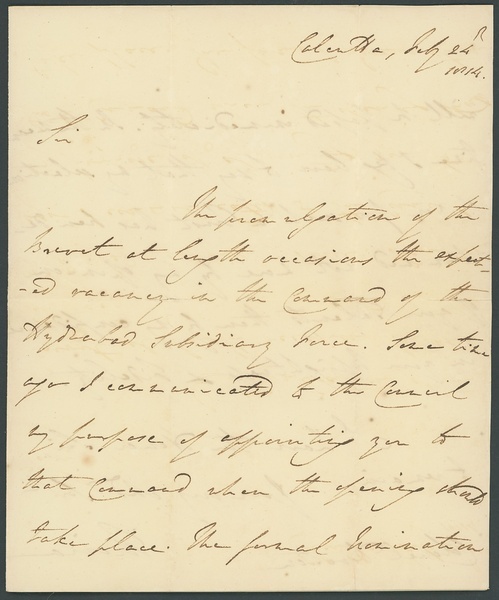 Calcutta, Feby 24th
1814.
Sir
The promulgation of the
Brevet at length occasions the expect-
-ed vacancy in the Command of the
Hydrabad Subsidiary Force. Some time
ago I communicated to the Council
my purpose of appointing you to
that Command when the opening should
take place. The formal Nomination